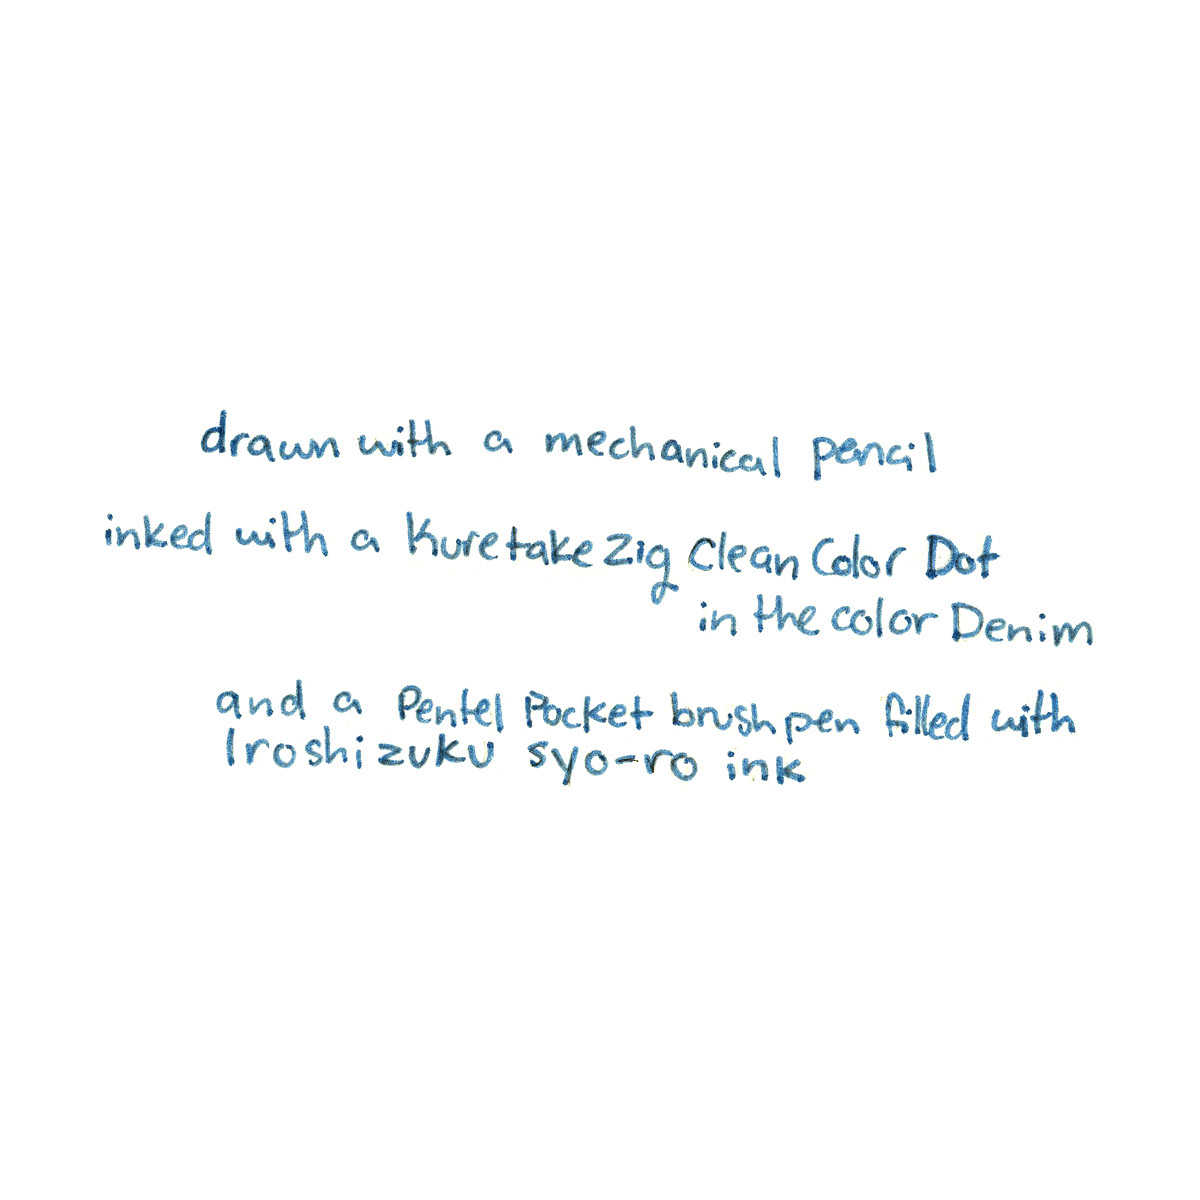 drawn with a mechanical pencil
inked with a Kuretake Zig Clean Color Dot
in the color Denim
and a Pentel Pocket brush pen filled with
Iroshizuku syo-ro ink